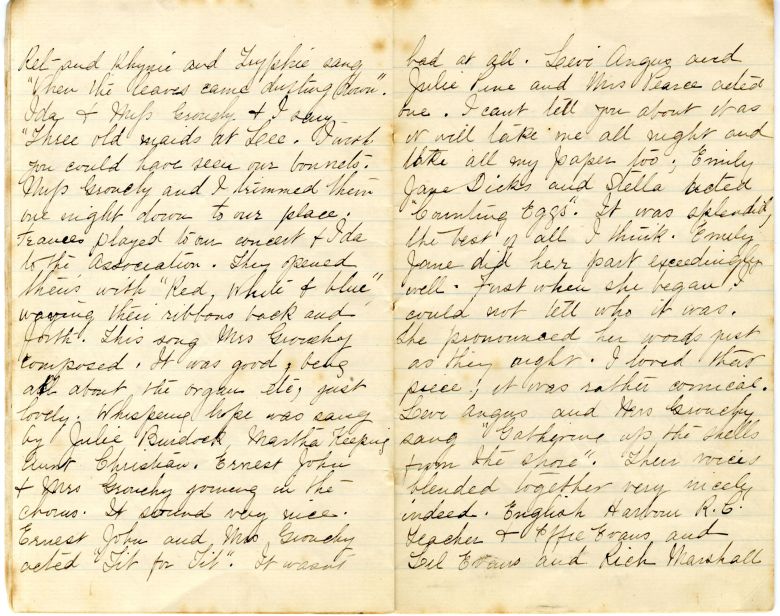 Ret and Rhynie and Tryphie sang
"When the leaves came drifting down".
Ida & Miss Grouchy & I sang
"Three old maids at Lee. I wish
you could have seen our bonnets.
Miss Grouchy and I trimmed them
one night down to our place.
Frances played to our concert & Ida
to the Association. They opened
theirs with "Red, White & blue"
waving their ribbons back and
forth. This song Mrs Grouchy
composed. It was good, being
all about the organ etc, just
lovely. Whispering hope was sang
by Julie Burdock, Martha Keeping
Aunt Christian. Ernest John
& Mrs Grouchy joining in the
chorus. It sound very nice.
Ernest John and Mrs Grouchy
acted "Tit for Tit". It wasn't
bad at all. Levi Angus and
Julie Pine and Mrs Pearce acted
one. I cant tell you about it as
it will take me all night and
take all my paper too; Emily
Jane Dicks and Stella acted
"Counting Eggs". It was splendid,
the best of all I think. Emily
Jane did her part exceedingly
well. Just when she began I
could not tell who it was.
She pronounced her words just
as they ought. I loved that
piece; it was rather comical.
Levi Angus and Mrs Grouchy
sang "Gathering up the shells
from the shore". Their voices
blended together very nicely
indeed. English Harbour R.E.
Teacher & Effie Evans and
Lel Evans and Rich Marshall